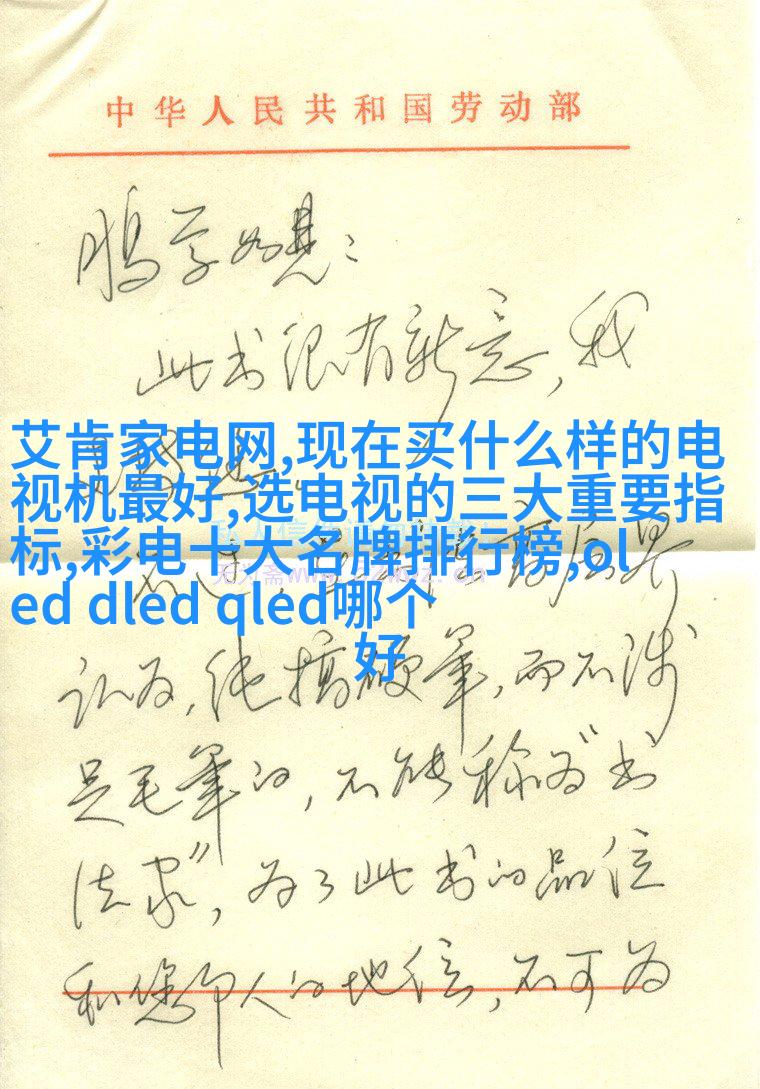 中华人民共和国劳动部
鹏学如晤：
此书很有新意，我
艾肯家电网,现在买什么样的电
视机最好,选电视的三大重要指
标,彩电十大名牌排行榜,ol
ed dled qled哪个
好
认为，纯搞硬笔，而不涉
足毛笔的，不能称为“书
法家”，为了此书的品位
和您印人的地位，不可为